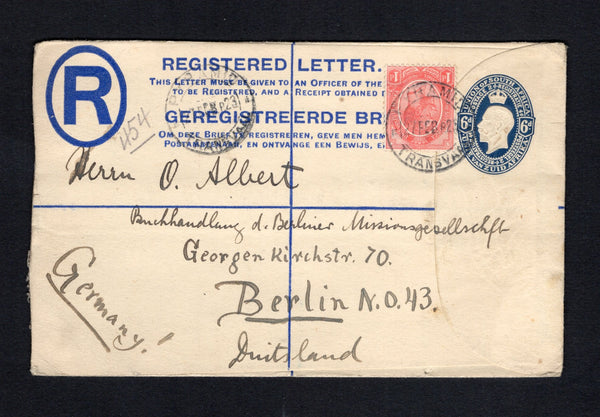 REGISTERED LETTER.
THIS LETTER MUST BE GIVEN TO AN OFFICER OF THE
TO BE REGISTERED, AND A RECEIPT OBTAINED
R
GEREGISTREERDE BR
OM DEZE BRIEF TE REGISTREREN, GEVE MEN HEM
EN ONTVANGE EEN BEWIJS,
454
1 1
TRANSVA
UNION OF SOUTH AFRICA
6d 6d
UNIE VAN ZUID AFRIKA
Herrn O. Albert
Buchhandlung d. Berliner Missionsgesellschft
Georgen Kirchstr. 70.
Berlin N.O.43.
Duitsland
Germany!